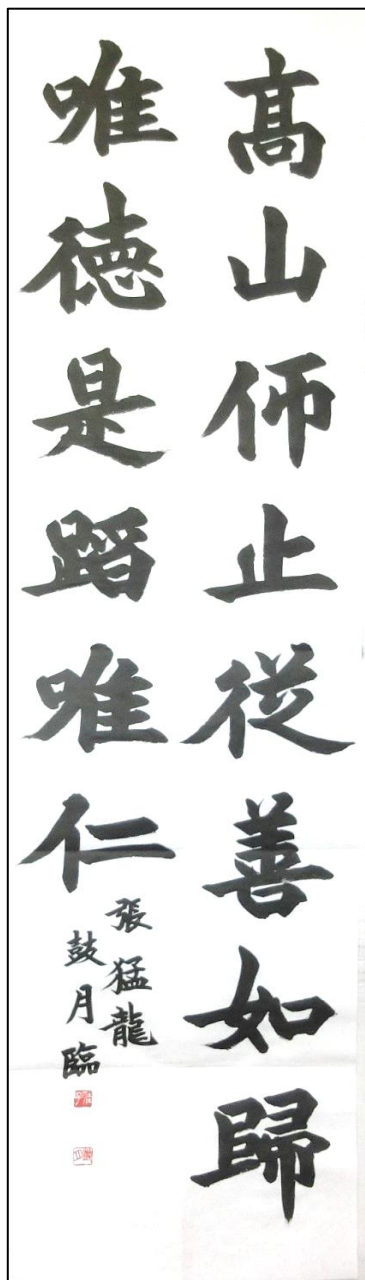 髙山仰止従善如歸
唯徳是蹈唯仁
張猛龍
鼓月臨